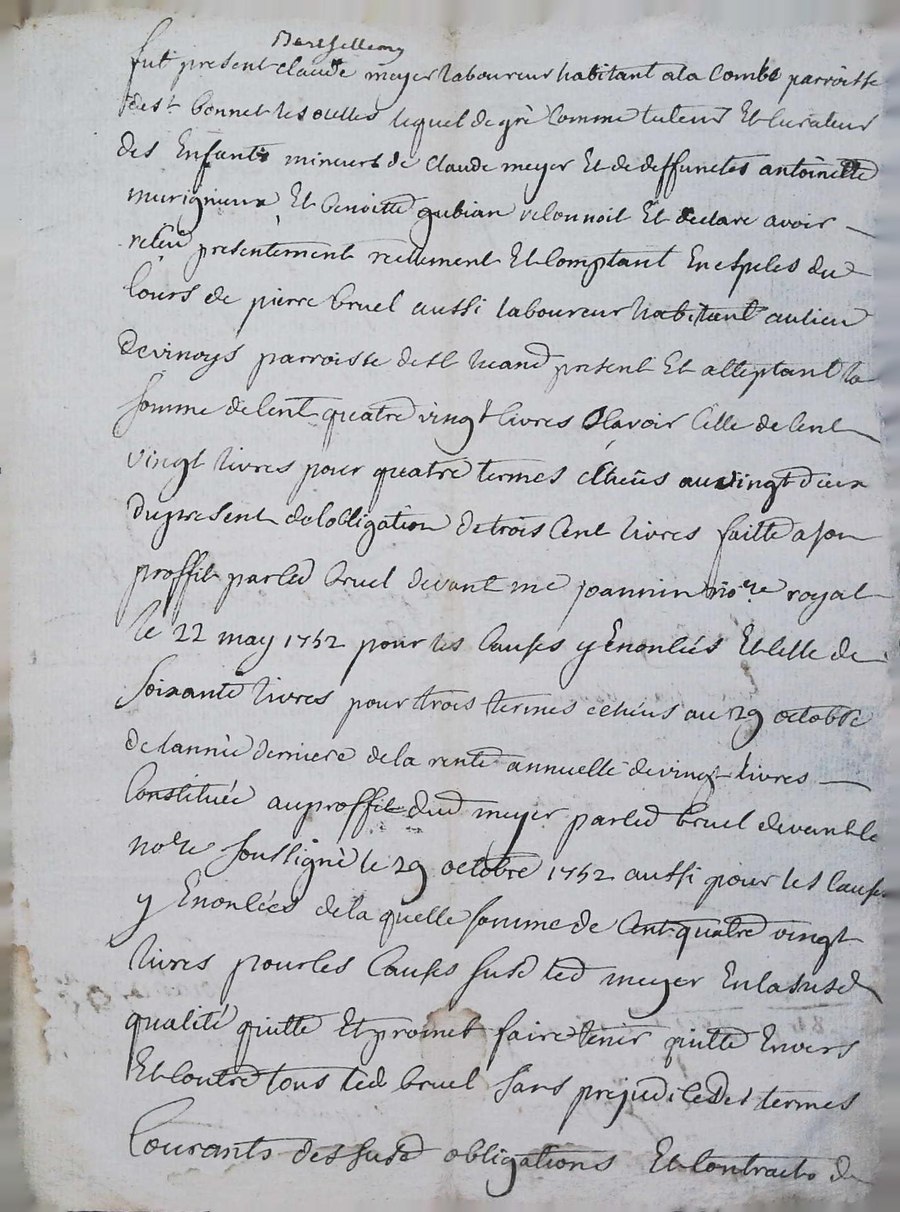 Barthellemy
fut present claude meyer laboureur habitant a la Combe parroisse
de st bonnet les oulles lequel de gré comme tuteur Et curateur
des Enfants mineurs de claude meyer Et de deffunctes antoinette
murigneux Et benoitte gubian reconnoit Et declare avoir
receu presentement reelement Et comptant En especes du
cours de pierre bruel aussi laboureur habitant au lieu
parroisse de st present Et acceptant la
somme de cent quatre vingt livres Scavoir celle de cent
vingt livres pour quatre termes echeüs au vingt deux
du present de lobligation de trois cent livres faitte a son
proffit par led bruel devant me joannin nore royal
le 22 may 1752 pour les causes y Enoncées Et celle de
soixante livres pour trois termes echeus au 29 octobre
de lannée derniere de la rente annuelle de vingt livres
Constituée au proffit dud meyer par led bruel devant le
nore soussigné le 29 octobre 1752 aussi pour les causes
y Enoncées de la quelle somme de cent quatre vingt
livres pour les causes susd led meyer En la susd
qualité quitte Et promet faire tenir quitte Envers
Et contre tous led bruel sans prejudice des termes
Courants des susd obligations Et contracts de